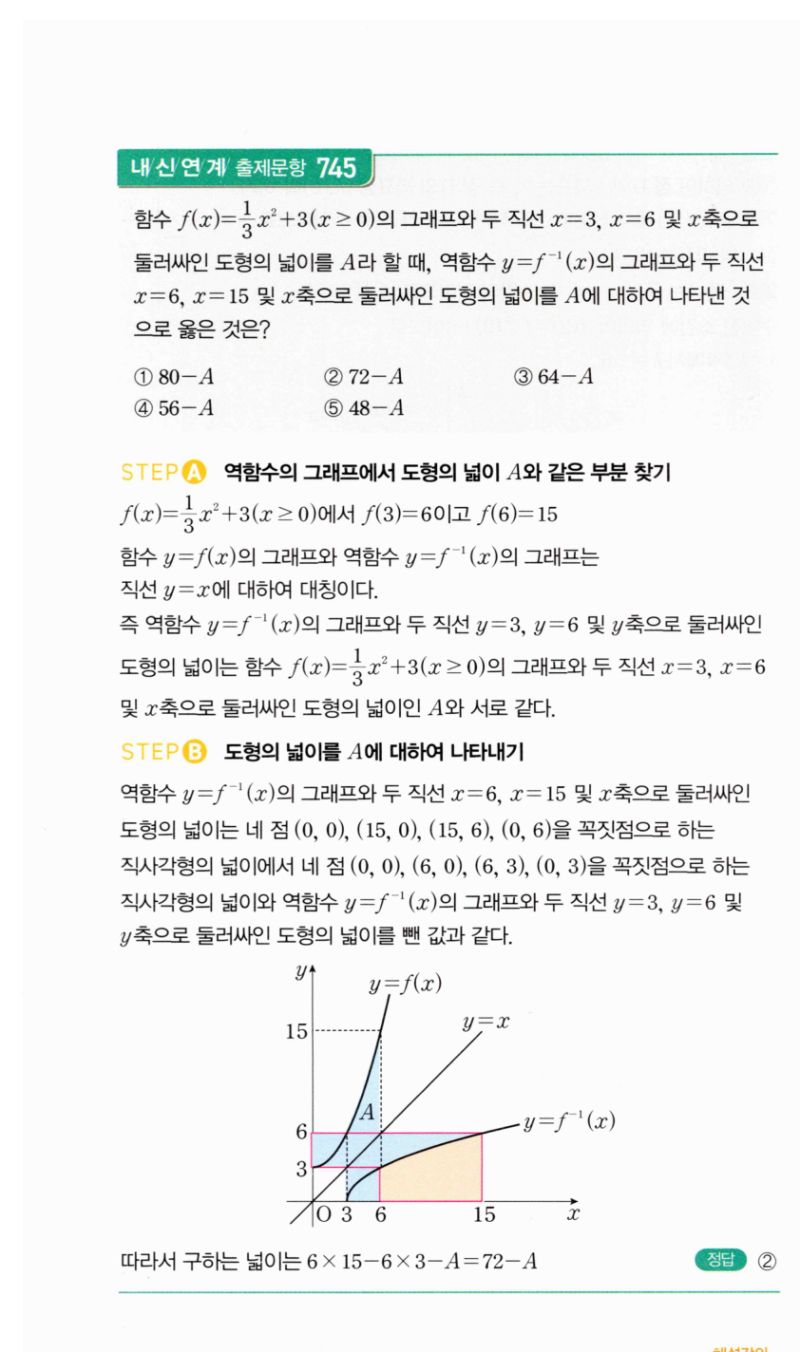 내신연계 출제문항 745
함수 f(x)=\frac{1}{3}x²+3(x≥0)의 그래프와 두 직선 x=3, x=6 및 x축으로
둘러싸인 도형의 넓이를 A라 할 때, 역함수 y=f⁻¹(x)의 그래프와 두 직선
x=6, x=15 및 x축으로 둘러싸인 도형의 넓이를 A에 대하여 나타낸 것
으로 옳은 것은?
① 80-A ② 72-A ③ 64-A
④ 56-A ⑤ 48-A
STEP A 역함수의 그래프에서 도형의 넓이 A와 같은 부분 찾기
f(x)=\frac{1}{3}x²+3(x≥0)에서 f(3)=6이고 f(6)=15
함수 y=f(x)의 그래프와 역함수 y=f⁻¹(x)의 그래프는
직선 y=x에 대하여 대칭이다.
즉 역함수 y=f⁻¹(x)의 그래프와 두 직선 y=3, y=6 및 y축으로 둘러싸인
도형의 넓이는 함수 f(x)=\frac{1}{3}x²+3(x≥0)의 그래프와 두 직선 x=3, x=6
및 x축으로 둘러싸인 도형의 넓이인 A와 서로 같다.
STEP B 도형의 넓이를 A에 대하여 나타내기
역함수 y=f⁻¹(x)의 그래프와 두 직선 x=6, x=15 및 x축으로 둘러싸인
도형의 넓이는 네 점 (0, 0), (15, 0), (15, 6), (0, 6)을 꼭짓점으로 하는
직사각형의 넓이에서 네 점 (0, 0), (6, 0), (6, 3), (0, 3)을 꼭짓점으로 하는
직사각형의 넓이와 역함수 y=f⁻¹(x)의 그래프와 두 직선 y=3, y=6 및
y축으로 둘러싸인 도형의 넓이를 뺀 값과 같다.
y
y=f(x)
15
y=x
A
6
y=f⁻¹(x)
3
O 3 6 15 x
따라서 구하는 넓이는 6×15-6×3-A=72-A 정답 ②